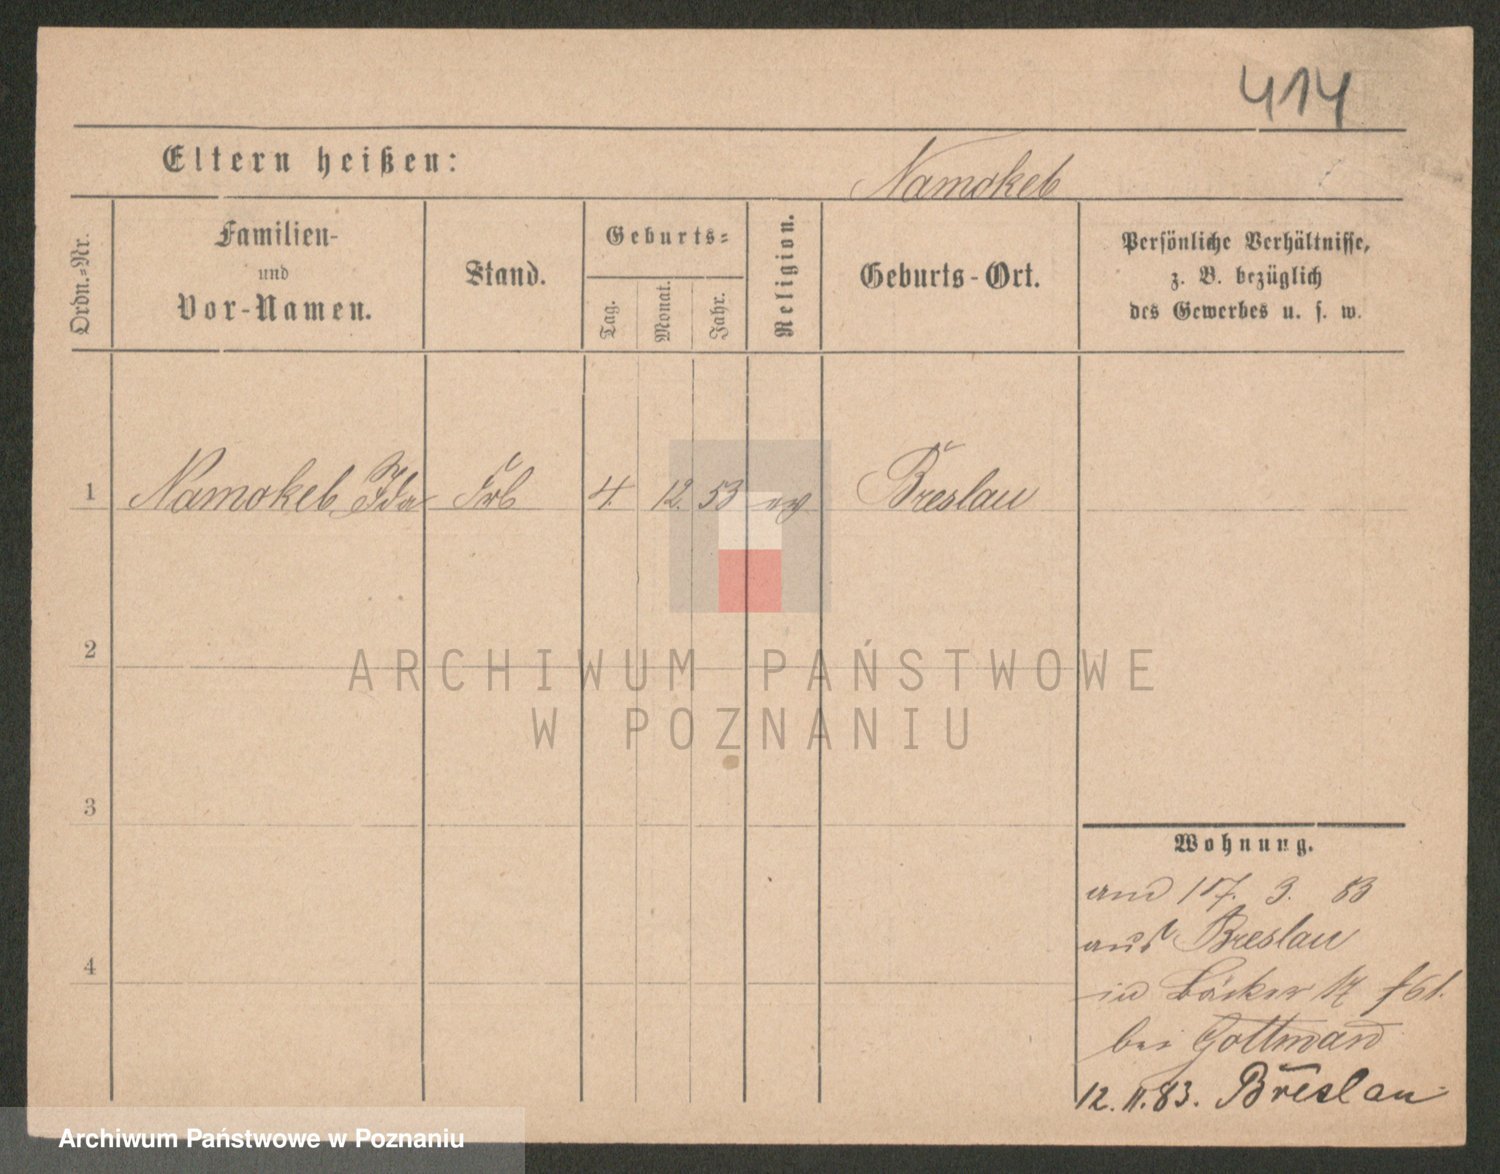 414
Eltern heißen:
Namokeb
Ordn.-Nr.
Familien-
und
Vor-Namen.
Stand.
Geburts-
Tag.
Monat.
Jahr.
Religion.
Geburts-Ort.
Persönliche Verhältnisse,
z. B. bezüglich
des Gewerbes u. s. w.
1 Namokeb, Ida 4. 12. 53 ev Breslau
2
3
4
ARCHIWUM PAŃSTWOWE
W POZNANIU
Wohnung.
17. 3. 83
aus Breslau
in Bäcker 17
bei Gottmann
12. 11. 83. Breslau
Archiwum Państwowe w Poznaniu